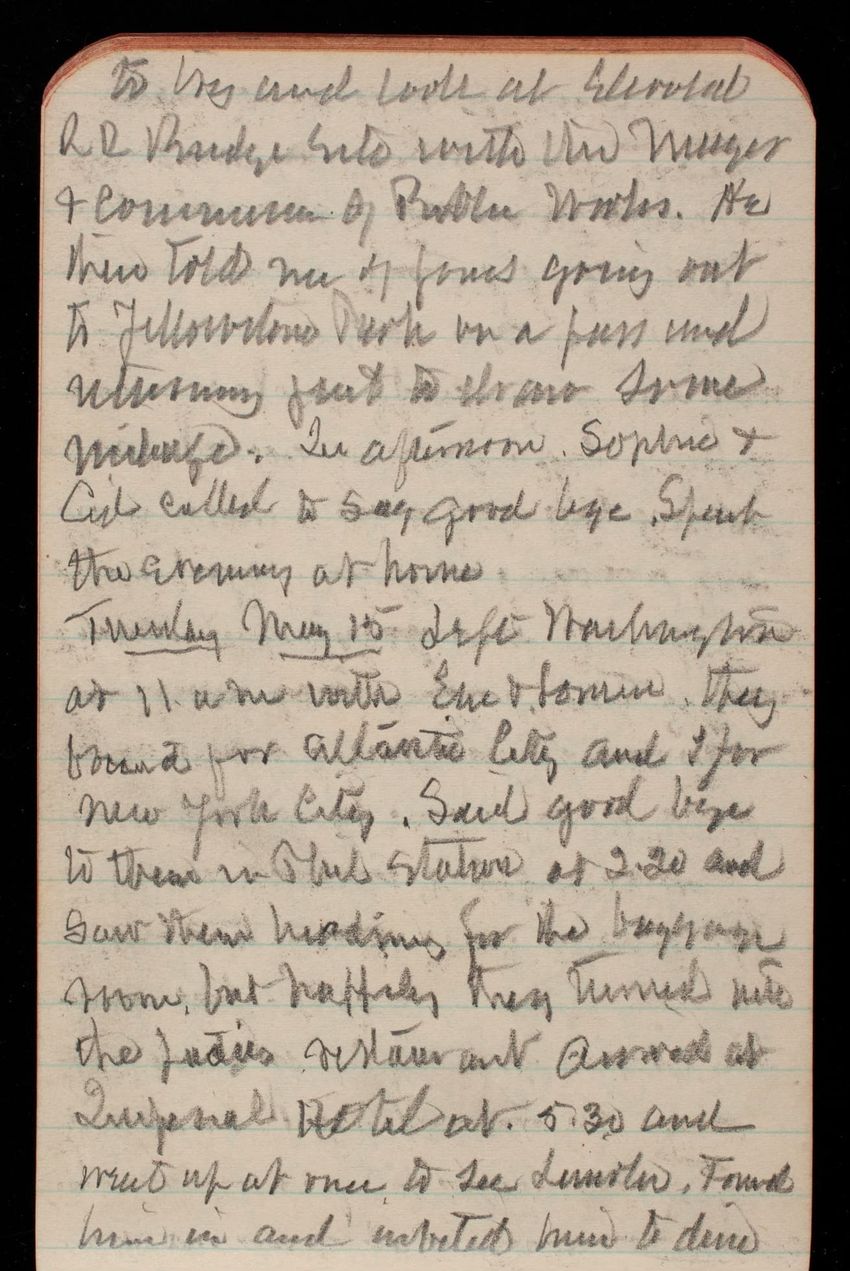 to try and look at Elevated
RR Bridge Site with the Mayor
& Commissr of Public Works. He
then told me of Jones going out
to Yellowstone Park on a pass and
returning just to draw some
mileage. In afternoon. Sophie &
Cid called to say good bye. Spent
the evening at home
Tuesday May 15 Left Washington
at 11 a m with Eve & . they
bound for Atlantic City and I for
New York City. Said good bye
to them in Phil Station at 2.20 and
saw them heading for the baggage
room, but happily they turned into
the ladies restaurant Arrived at
Imperial Hotel at. 5.30 and
went up at once to see . Found
him in and invited him to dine